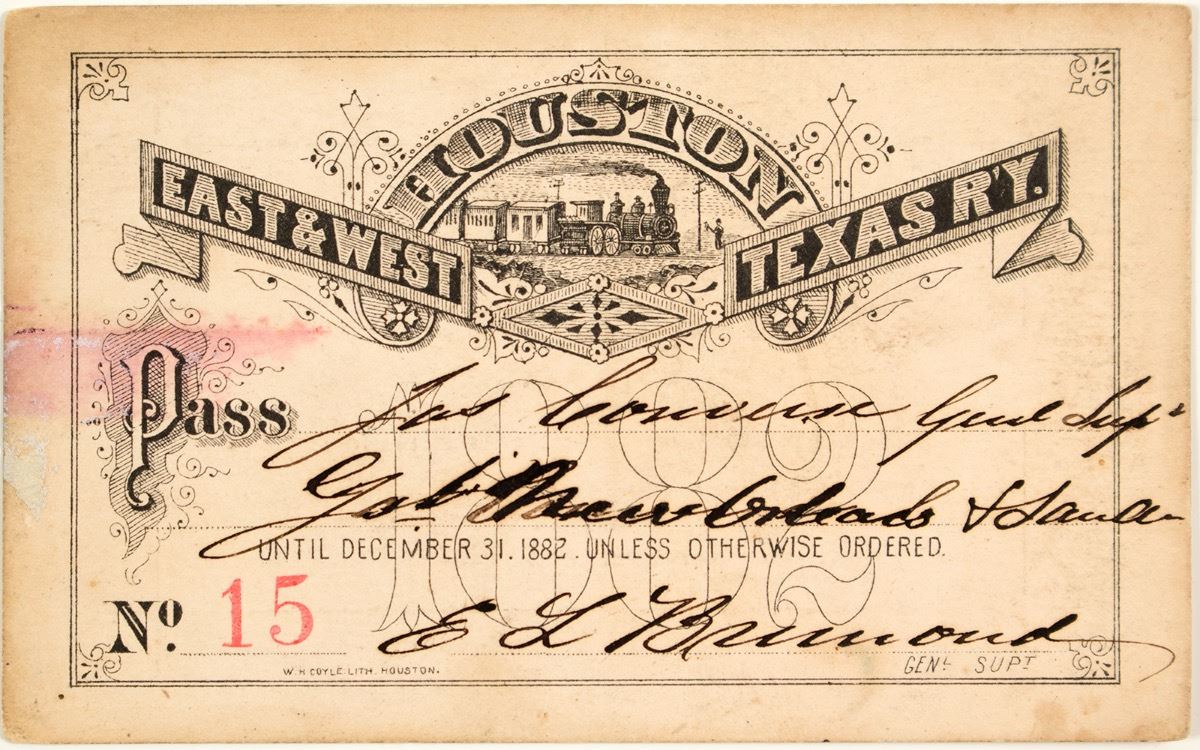 HOUSTON
EAST & WEST TEXAS R'Y.
1882
Pass Jas Converse Genl Supt
Gal New Orleans &
UNTIL DECEMBER 31. 1882. UNLESS OTHERWISE ORDERED.
No. 15 E L
W. H. COYLE LITH. HOUSTON.
GENL SUPT